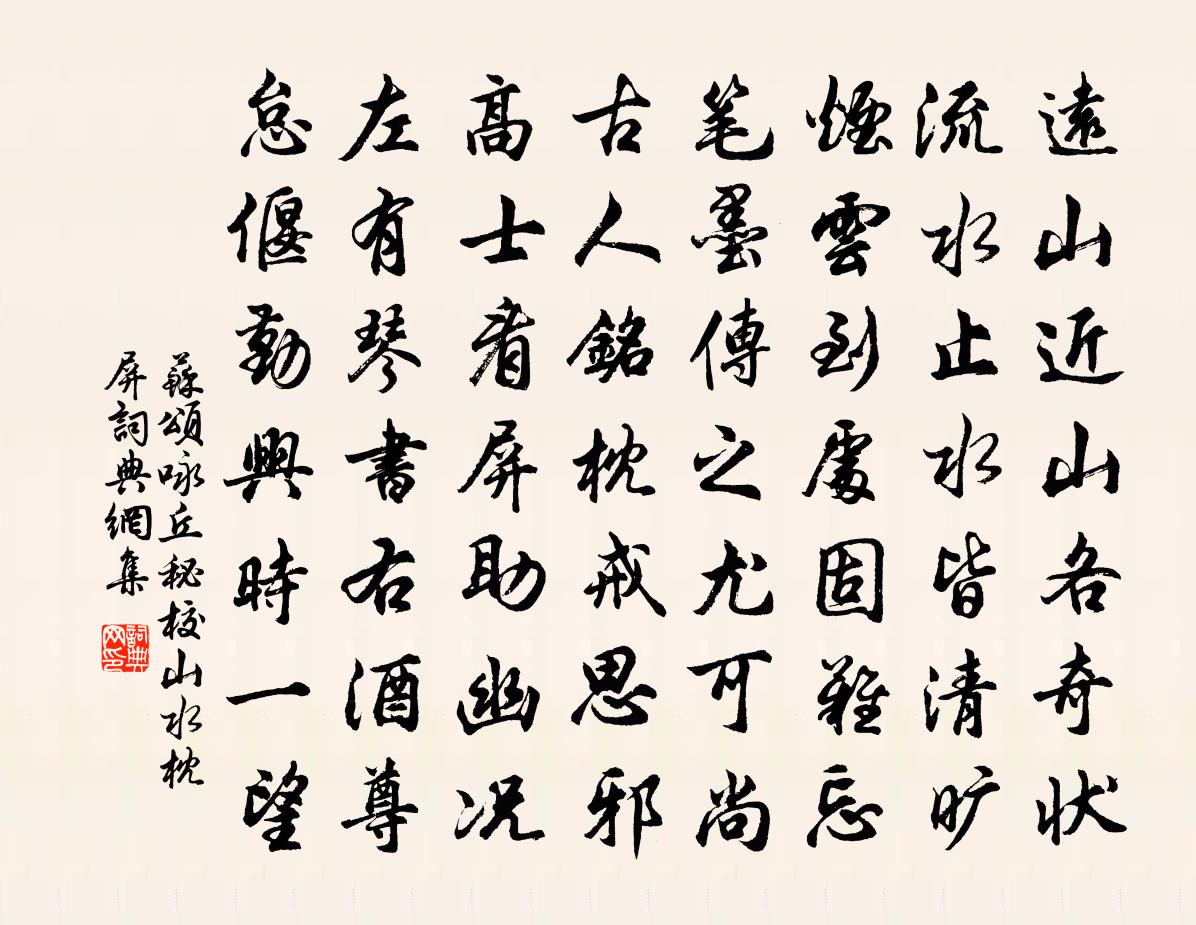 遠山近山各奇狀
流水止水皆清旷
煙雲到處固難忘
笔墨傳之尤可尚
古人銘枕戒思邪
高士看屏助幽况
左有琴書右酒尊
怠偃勤興時一望
蘇頌咏丘秘校山水枕
屏詞典網集
詞典
网印